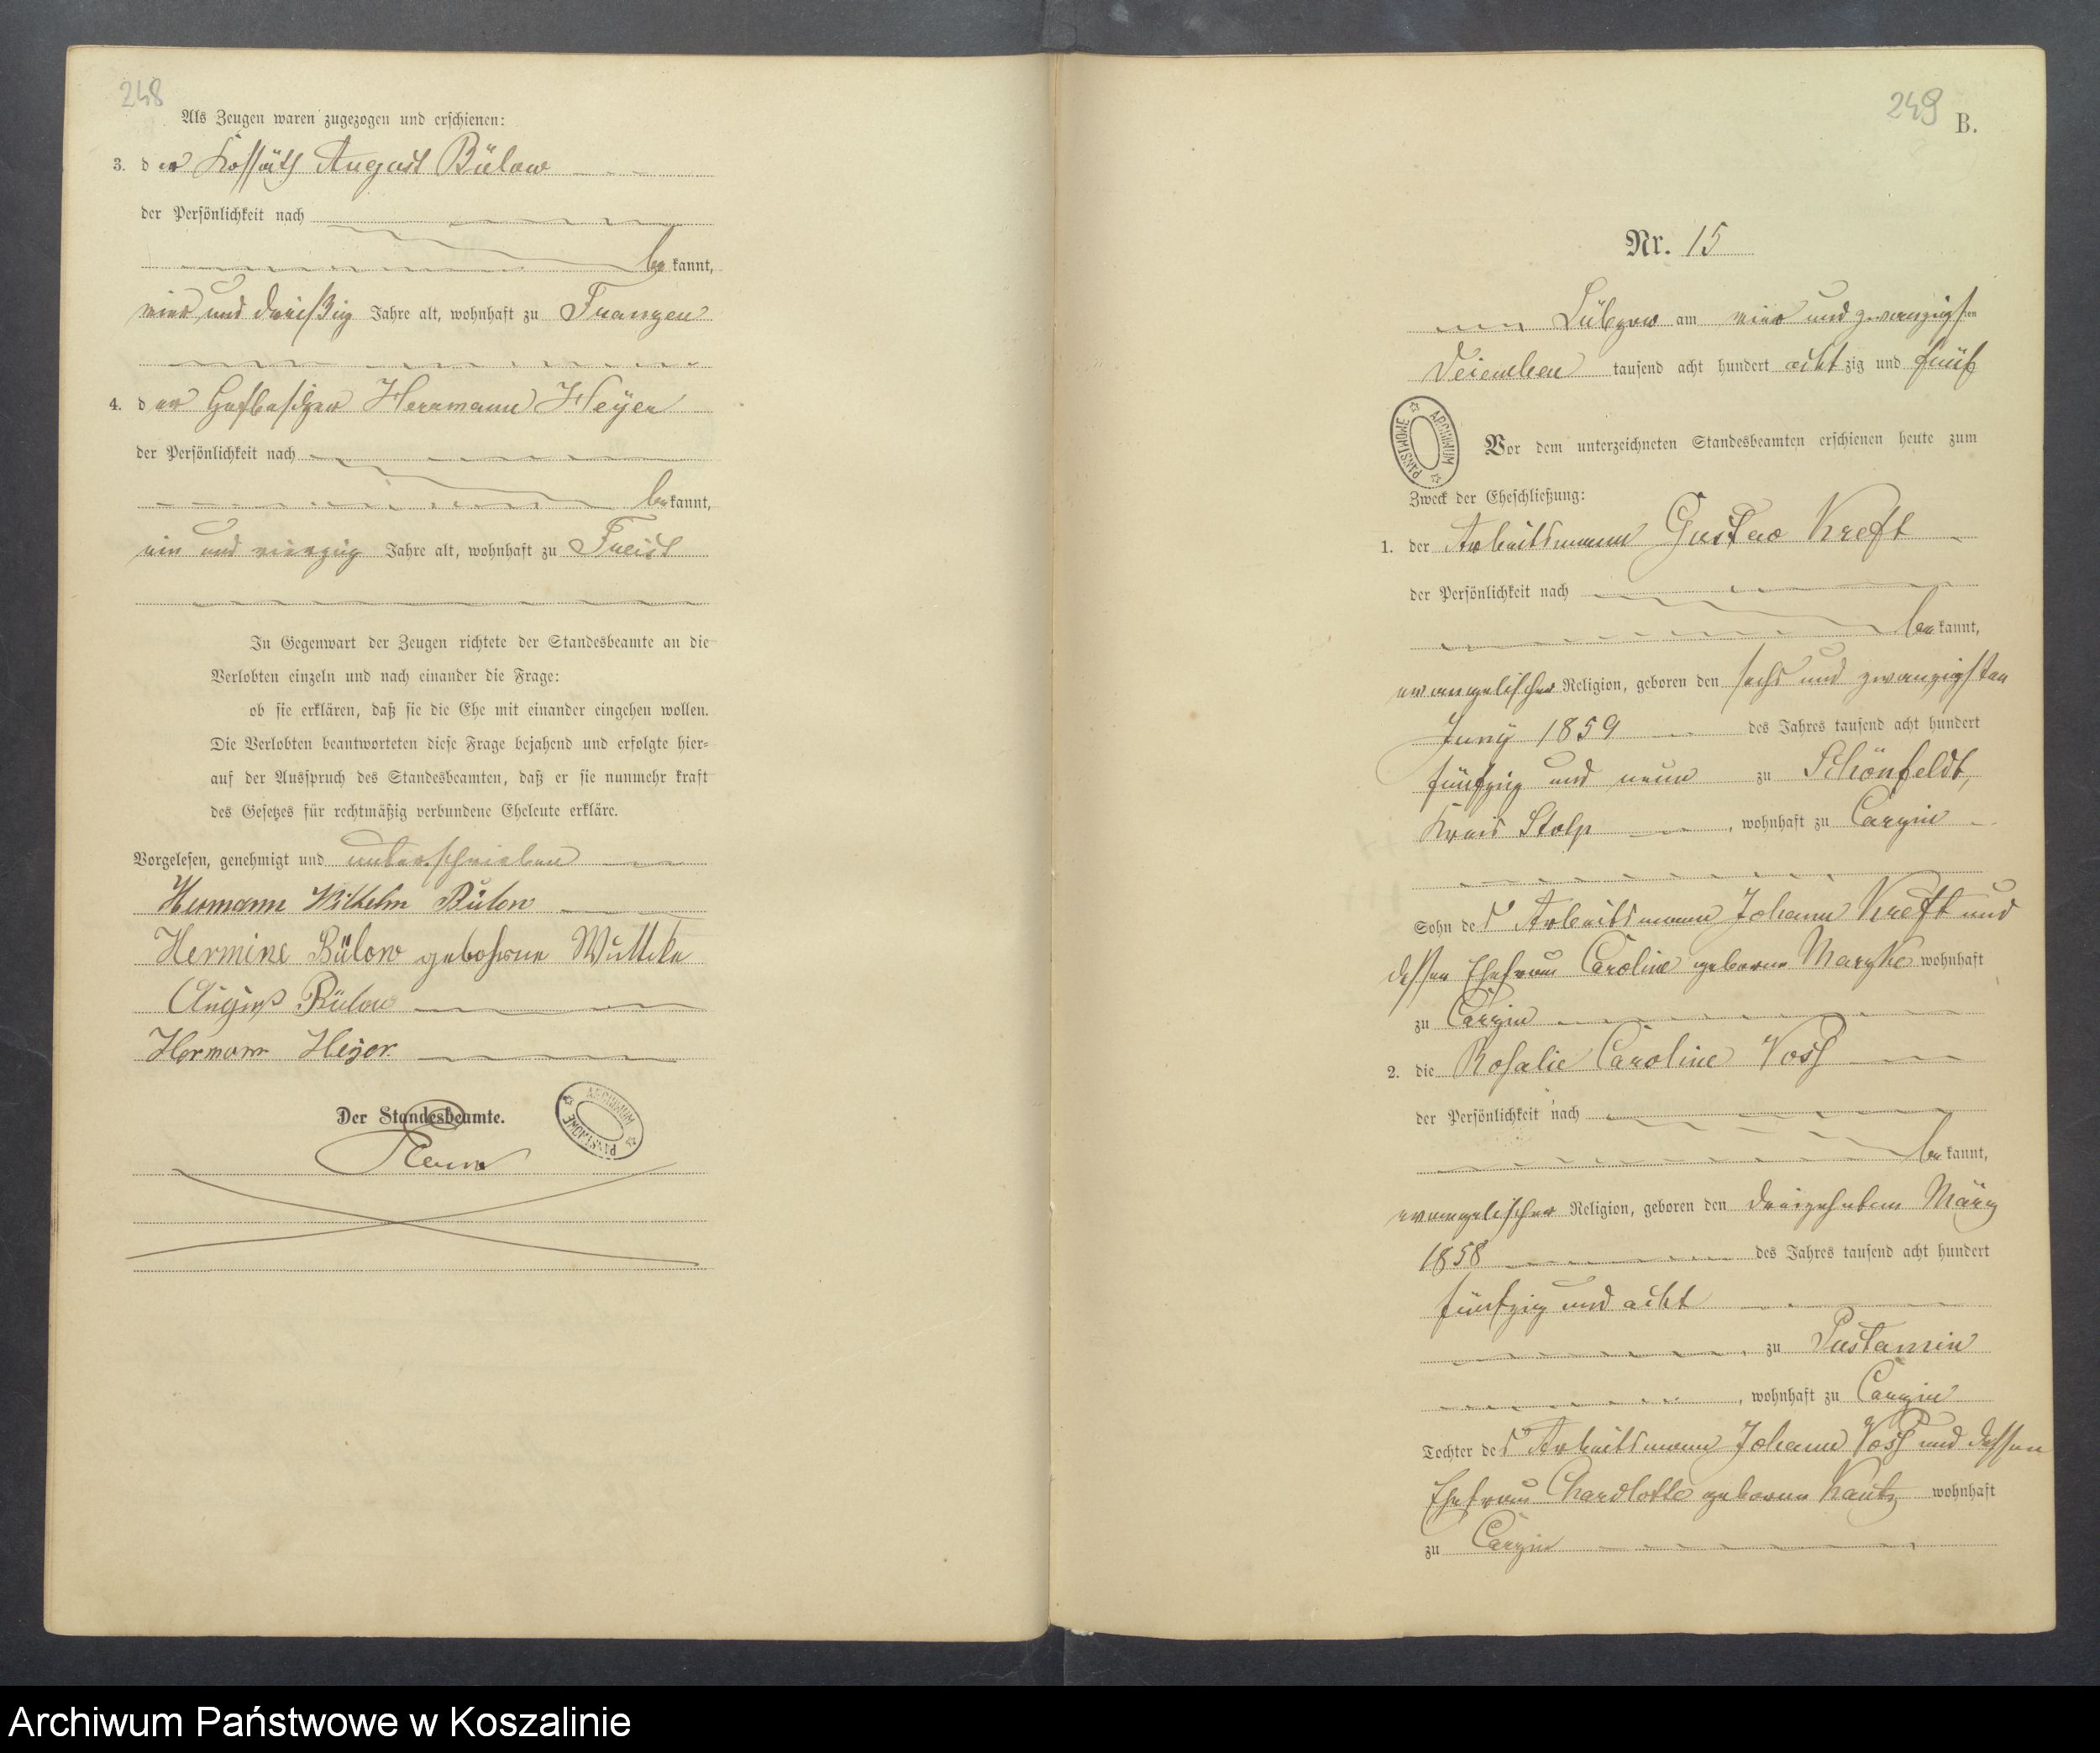 248
Als Zeugen waren zugezogen und erschienen:
3. der Kossäth August Bülow
der Persönlichkeit nach
bekannt,
vier und dreißig Jahre alt, wohnhaft zu Franzen
4. der Hofbesitzer Herrmann Heyer
der Persönlichkeit nach
bekannt,
ein und vierzig Jahre alt, wohnhaft zu Freist
In Gegenwart der Zeugen richtete der Standesbeamte an die
Verlobten einzeln und nach einander die Frage:
ob sie erklären, daß sie die Ehe mit einander eingehen wollen.
Die Verlobten beantworteten diese Frage bejahend und erfolgte hier-
auf der Ausspruch des Standesbeamten, daß er sie nunmehr kraft
des Gesetzes für rechtmäßig verbundene Eheleute erkläre.
Vorgelesen, genehmigt und unterschrieben
Hermann Wilhelm Bülow
Hermine Bülow gebohrene Wuttcke
August Bülow
Hermann Heyer
Der Standesbeamte.
ARCHIWUM PAŃSTWOWE
249
B.
Nr. 15
Lübzow am vier und zwanzigsten
Dezember tausend acht hundert achtzig und fünf
ARCHIWUM PAŃSTWOWE
Vor dem unterzeichneten Standesbeamten erschienen heute zum
Zweck der Eheschließung:
1. der Arbeitsmann Gustav Kreft
der Persönlichkeit nach
bekannt,
evangelischer Religion, geboren den sechs und zwanzigsten
Juny 1859 des Jahres tausend acht hundert
fünfzig und neun zu Schönfeldt,
Kreis Stolp, wohnhaft zu Carzin
Sohn des Arbeitsmann Johann Kreft und
dessen Ehefrau Caroline geborne Marzke wohnhaft
zu Carzin
2. die Rosalie Caroline Voss
der Persönlichkeit nach
bekannt,
evangelischer Religion, geboren den dreizehnten März
1858 des Jahres tausend acht hundert
fünfzig und acht
, zu Pustamin
, wohnhaft zu Carzin
Tochter des Arbeitsmann Johann Voss und dessen
Ehefrau Chardlotte geborne Kautz wohnhaft
zu Carzin
Archiwum Państwowe w Koszalinie